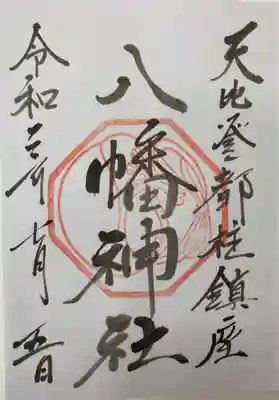 天比登都柱鎮座
八幡神社
令和二年十月五日